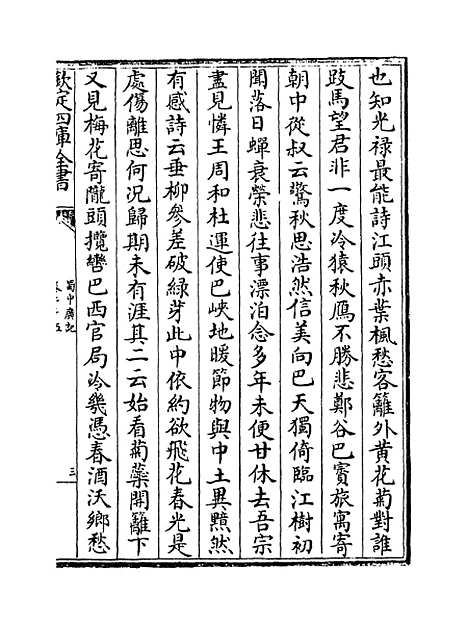 也知光祿最能詩江頭赤葉楓愁客籬外黃花菊對誰
跂馬望君非一度冷猿秋鴈不勝悲鄭谷巴賨旅寓寄
朝中從叔云驚秋思浩然信美向巴天獨倚臨江樹初
聞落日蟬衰榮悲往事漂泊念多年未便甘休去吾宗
盡見憐王周和杜運使巴峽地暖節物與中土異黯然
有感詩云垂柳參差破綠芽此中依約欲飛花春光是
處傷離思何況歸期未有涯其二云始看菊蘂開籬下
又見梅花寄隴頭攬轡巴西官局冷幾憑春酒沃鄉愁
欽定四庫全書
蜀中廣記
三